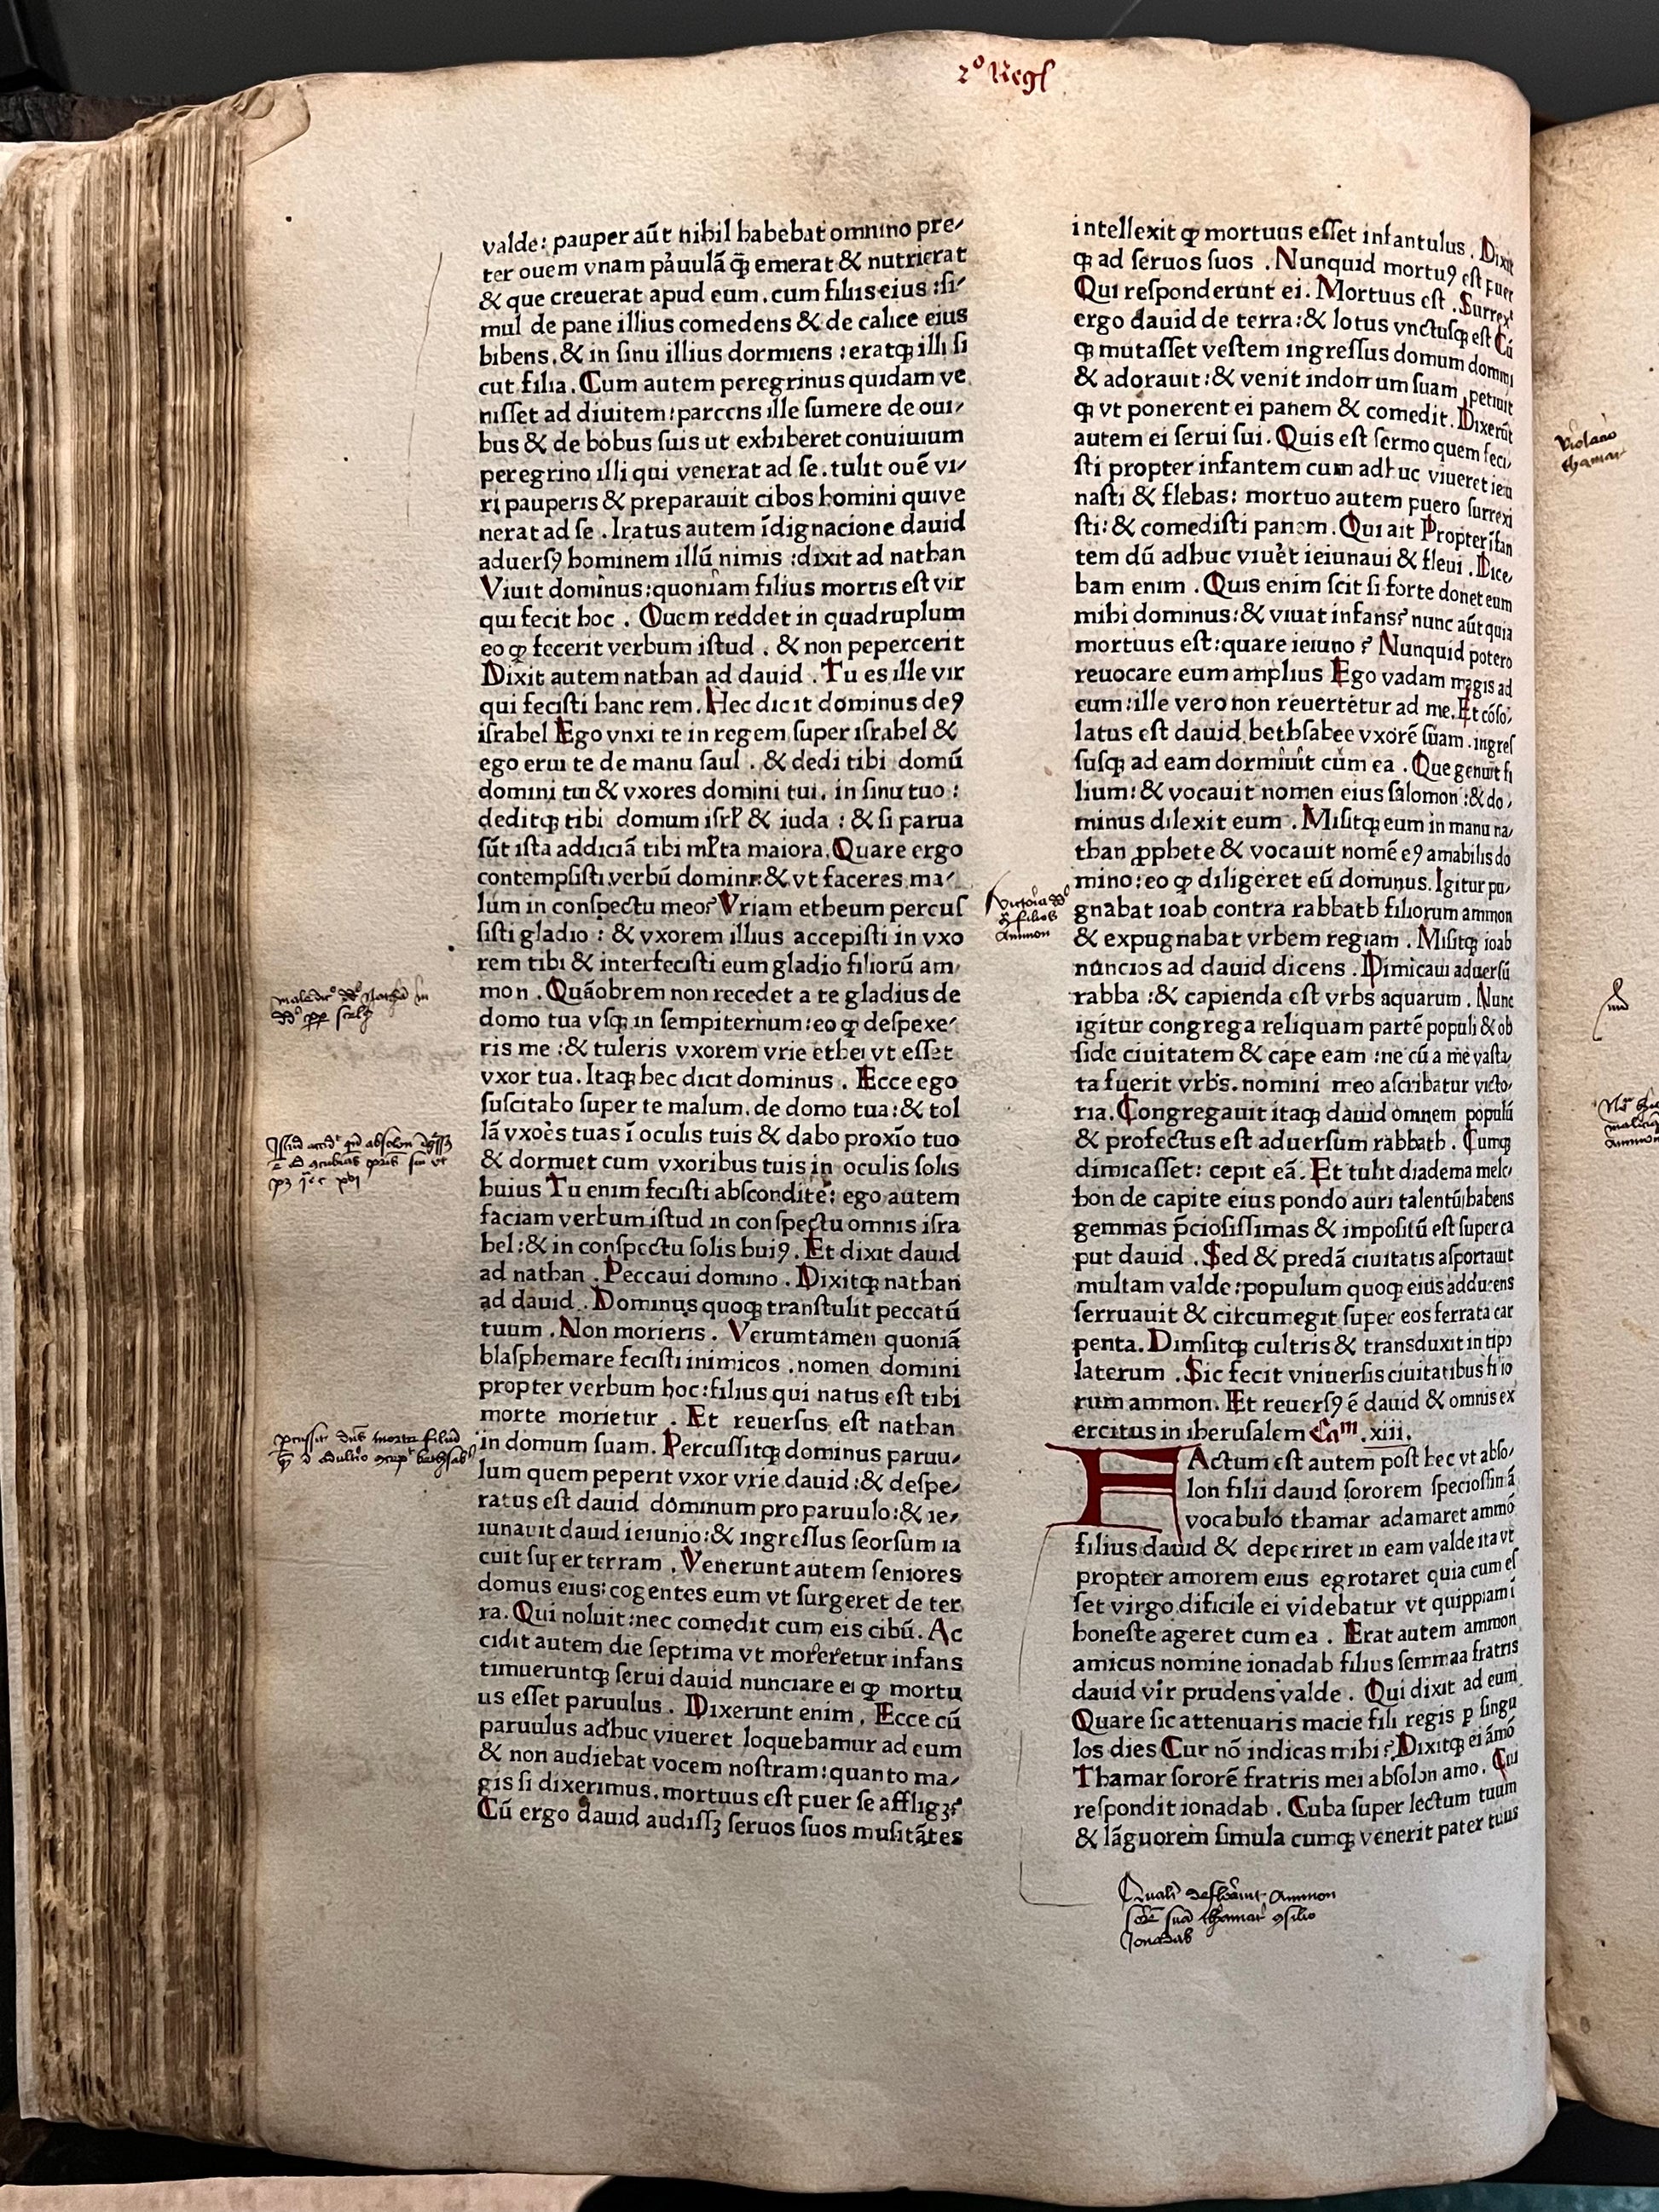 2º Regꝭ
valde: pauper aūt nihil habebat omnino pre⸗
ter ouem vnam pauulā q̄ emerat & nutrierat
& que creuerat apud eum. cum filiis eius :ſi⸗
mul de pane illius comedens & de calice eius
bibens. & in ſinu illius dormiens : eratqꝫ illi ſi
cut filia. Cum autem peregrinus quidam ve
niſſet ad diuitem: parcens ille ſumere de oui⸗
bus & de bobus ſuis ut exhiberet conuiuium
peregrino illi qui venerat ad ſe. tulit ouē vi⸗
ri pauperis & preparauit cibos homini qui ve
nerat ad ſe . Iratus autem īdignacione dauid
aduerſꝯ hominem illū nimis :dixit ad nathan
Viuit dominus:quoniam filius mortis eſt vir
qui fecit hoc . Quem reddet in quadruplum
eo ꝙ fecerit verbum iſtud . & non pepercerit
Dixit autem nathan ad dauid . Tu es ille vir
qui feciſti hanc rem. Hec dicit dominus deꝯ
iſrahel Ego vnxi te in regem ſuper iſrahel &
ego erui te de manu ſaul . & dedi tibi domū
domini tui & vxores domini tui. in ſinu tuo :
deditqꝫ tibi domum iſrl̄ & iuda : & ſi parua
ſūt iſta addiciā tibi ml̄ta maiora. Quare ergo
contempſiſti verbū domini:& vt faceres ma⸗
lum in conſpectu meo? Vriam etheum percuſ
ſiſti gladio : & vxorem illius accepiſti in vxo
rem tibi & interfeciſti eum gladio filiorū am⸗
mon . Quāobrem non recedet a te gladius de
domo tua vſqꝫ in ſempiternum:eo ꝙ deſpexe⸗
ris me :& tuleris vxorem vrie ethei vt eſſet
vxor tua. Itaqꝫ hec dicit dominus . Ecce ego
ſuſcitabo ſuper te malum. de domo tua:& tol
lā vxoēs tuas ī oculis tuis & dabo proxīo tuo
& dormiet cum vxoribus tuis in oculis ſolis
huius Tu enim feciſti abſcondite: ego autem
faciam verbum iſtud in conſpectu omnis iſra
hel:& in conſpectu ſolis huiꝯ. Et dixit dauid
ad nathan . Peccaui domino . Dixitqꝫ nathan
ad dauid . Dominus quoqꝫ tranſtulit peccatū
tuum . Non morieris . Verumtamen quoniā
blaſphemare feciſti inimicos .nomen domini
propter verbum hoc:filius qui natus eſt tibi
morte morietur . Et reuerſus eſt nathan
in domum ſuam. Percuſſitqꝫ dominus paruu⸗
lum quem peperit vxor vrie dauid :& deſpe⸗
ratus eſt dauid dominum pro paruulo:& ie⸗
iunauit dauid ieiunio:& ingreſſus ſeorſum ia
cuit ſuper terram . Venerunt autem ſeniores
domus eius: cogentes eum vt ſurgeret de ter
ra. Qui noluit:nec comedit cum eis cibū. Ac
cidit autem die ſeptima vt moreretur infans
timueruntqꝫ ſerui dauid nunciare ei ꝙ mortu
us eſſet paruulus . Dixerunt enim . Ecce cū
paruulus adhuc viueret loquebamur ad eum
& non audiebat vocem noſtram:quanto ma⸗
gis ſi dixerimus. mortuus eſt puer ſe affligꝫ?
Cū ergo dauid audiſſꝫ ſeruos ſuos muſitātes
intellexit ꝙ mortuus eſſet infantulus . Dixit
qꝫ ad ſeruos ſuos . Nunquid mortuꝯ eſt puer
Qui reſponderunt ei. Mortuus eſt . Surrexͭ
ergo dauid de terra:& lotus vnctuſqꝫ eſt Cū
qꝫ mutaſſet veſtem ingreſſus domum domini
& adorauit:& venit in domum ſuam . petiuit
qꝫ vt ponerent ei panem & comedit. Dixerūt
autem ei ſerui ſui. Quis eſt ſermo quem feci⸗
ſti propter infantem cum adhuc viueret ieiu
naſti & flebas: mortuo autem puero ſurrexi
ſti: & comediſti panem. Qui ait Propter īfan
tem dū adhuc viuēt ieiunaui & fleui . Dice⸗
bam enim . Quis enim ſcit ſi forte donet eum
mihi dominus:& viuat infans? nunc aūt quia
mortuus eſt:quare ieiuno ? Nunquid potero
reuocare eum amplius Ego vadam magis ad
eum:ille vero non reuertetur ad me. Et cōſo⸗
latus eſt dauid bethſabee vxorē ſuam .ingreſ
ſuſqꝫ ad eam dormiuit cum ea . Que genuit fi
lium:& vocauit nomen eius ſalomon :& do⸗
minus dilexit eum . Miſitqꝫ eum in manu na⸗
than ꝓphete & vocauit nomē eꝯ amabilis do
mino:eo ꝙ diligeret eū dominus. Igitur pu⸗
gnabat ioab contra rabbath filiorum ammon
& expugnabat vrbem regiam . Miſitqꝫ ioab
nuncios ad dauid dicens . Dimicaui aduerſū
rabba :& capienda eſt vrbs aquarum . Nunc
igitur congrega reliquam partē populi & ob
ſide ciuitatem & cape eam :ne cū a me vaſta⸗
ta fuerit vrbs. nomini meo aſcribatur victo⸗
ria. Congregauit itaqꝫ dauid omnem populū
& profectus eſt aduerſum rabbath . Cumqꝫ
dimicaſſet: cepit eā. Et tulit diadema melc⸗
hon de capite eius pondo auri talentū habens
gemmas p̄cioſiſſimas & impoſitū eſt ſuper ca
put dauid . Sed & predā ciuitatis aſportauit
multam valde:populum quoqꝫ eius adducens
ſerruauit & circumegit ſuper eos ferrata car
penta. Dimſitqꝫ cultris & tranſduxit in tipo
laterum . Sic fecit vniuerſis ciuitatibus filio
rum ammon. Et reuerſꝯ ē dauid & omnis ex
ercitus in iheruſalem Caᵐ .xiii.
FActum eſt autem poſt hec vt abſo⸗
lon filii dauid ſororem ſpecioſſimā
vocabulo thamar adamaret ammō
filius dauid & deperiret in eam valde ita vt
propter amorem eius egrotaret quia cum eſ
ſet virgo dificile ei videbatur vt quippiam ī
honeſte ageret cum ea . Erat autem ammon
amicus nomine ionadab filius ſemmaa fratris
dauid vir prudens valde . Qui dixit ad eum
Quare ſic attenuaris macie fili regis p ſingu
los dies Cur nō indicas mihi ? Dixitqꝫ ei āmō
Thamar ſororē fratris mei abſolon amo. Cui
reſpondit ionadab . Cuba ſuper lectum tuum
& lāguorem ſimula cumqꝫ venerit pater tuus
victoria
filios
Ammon
Ammon
thamar
Jonadab
thamar